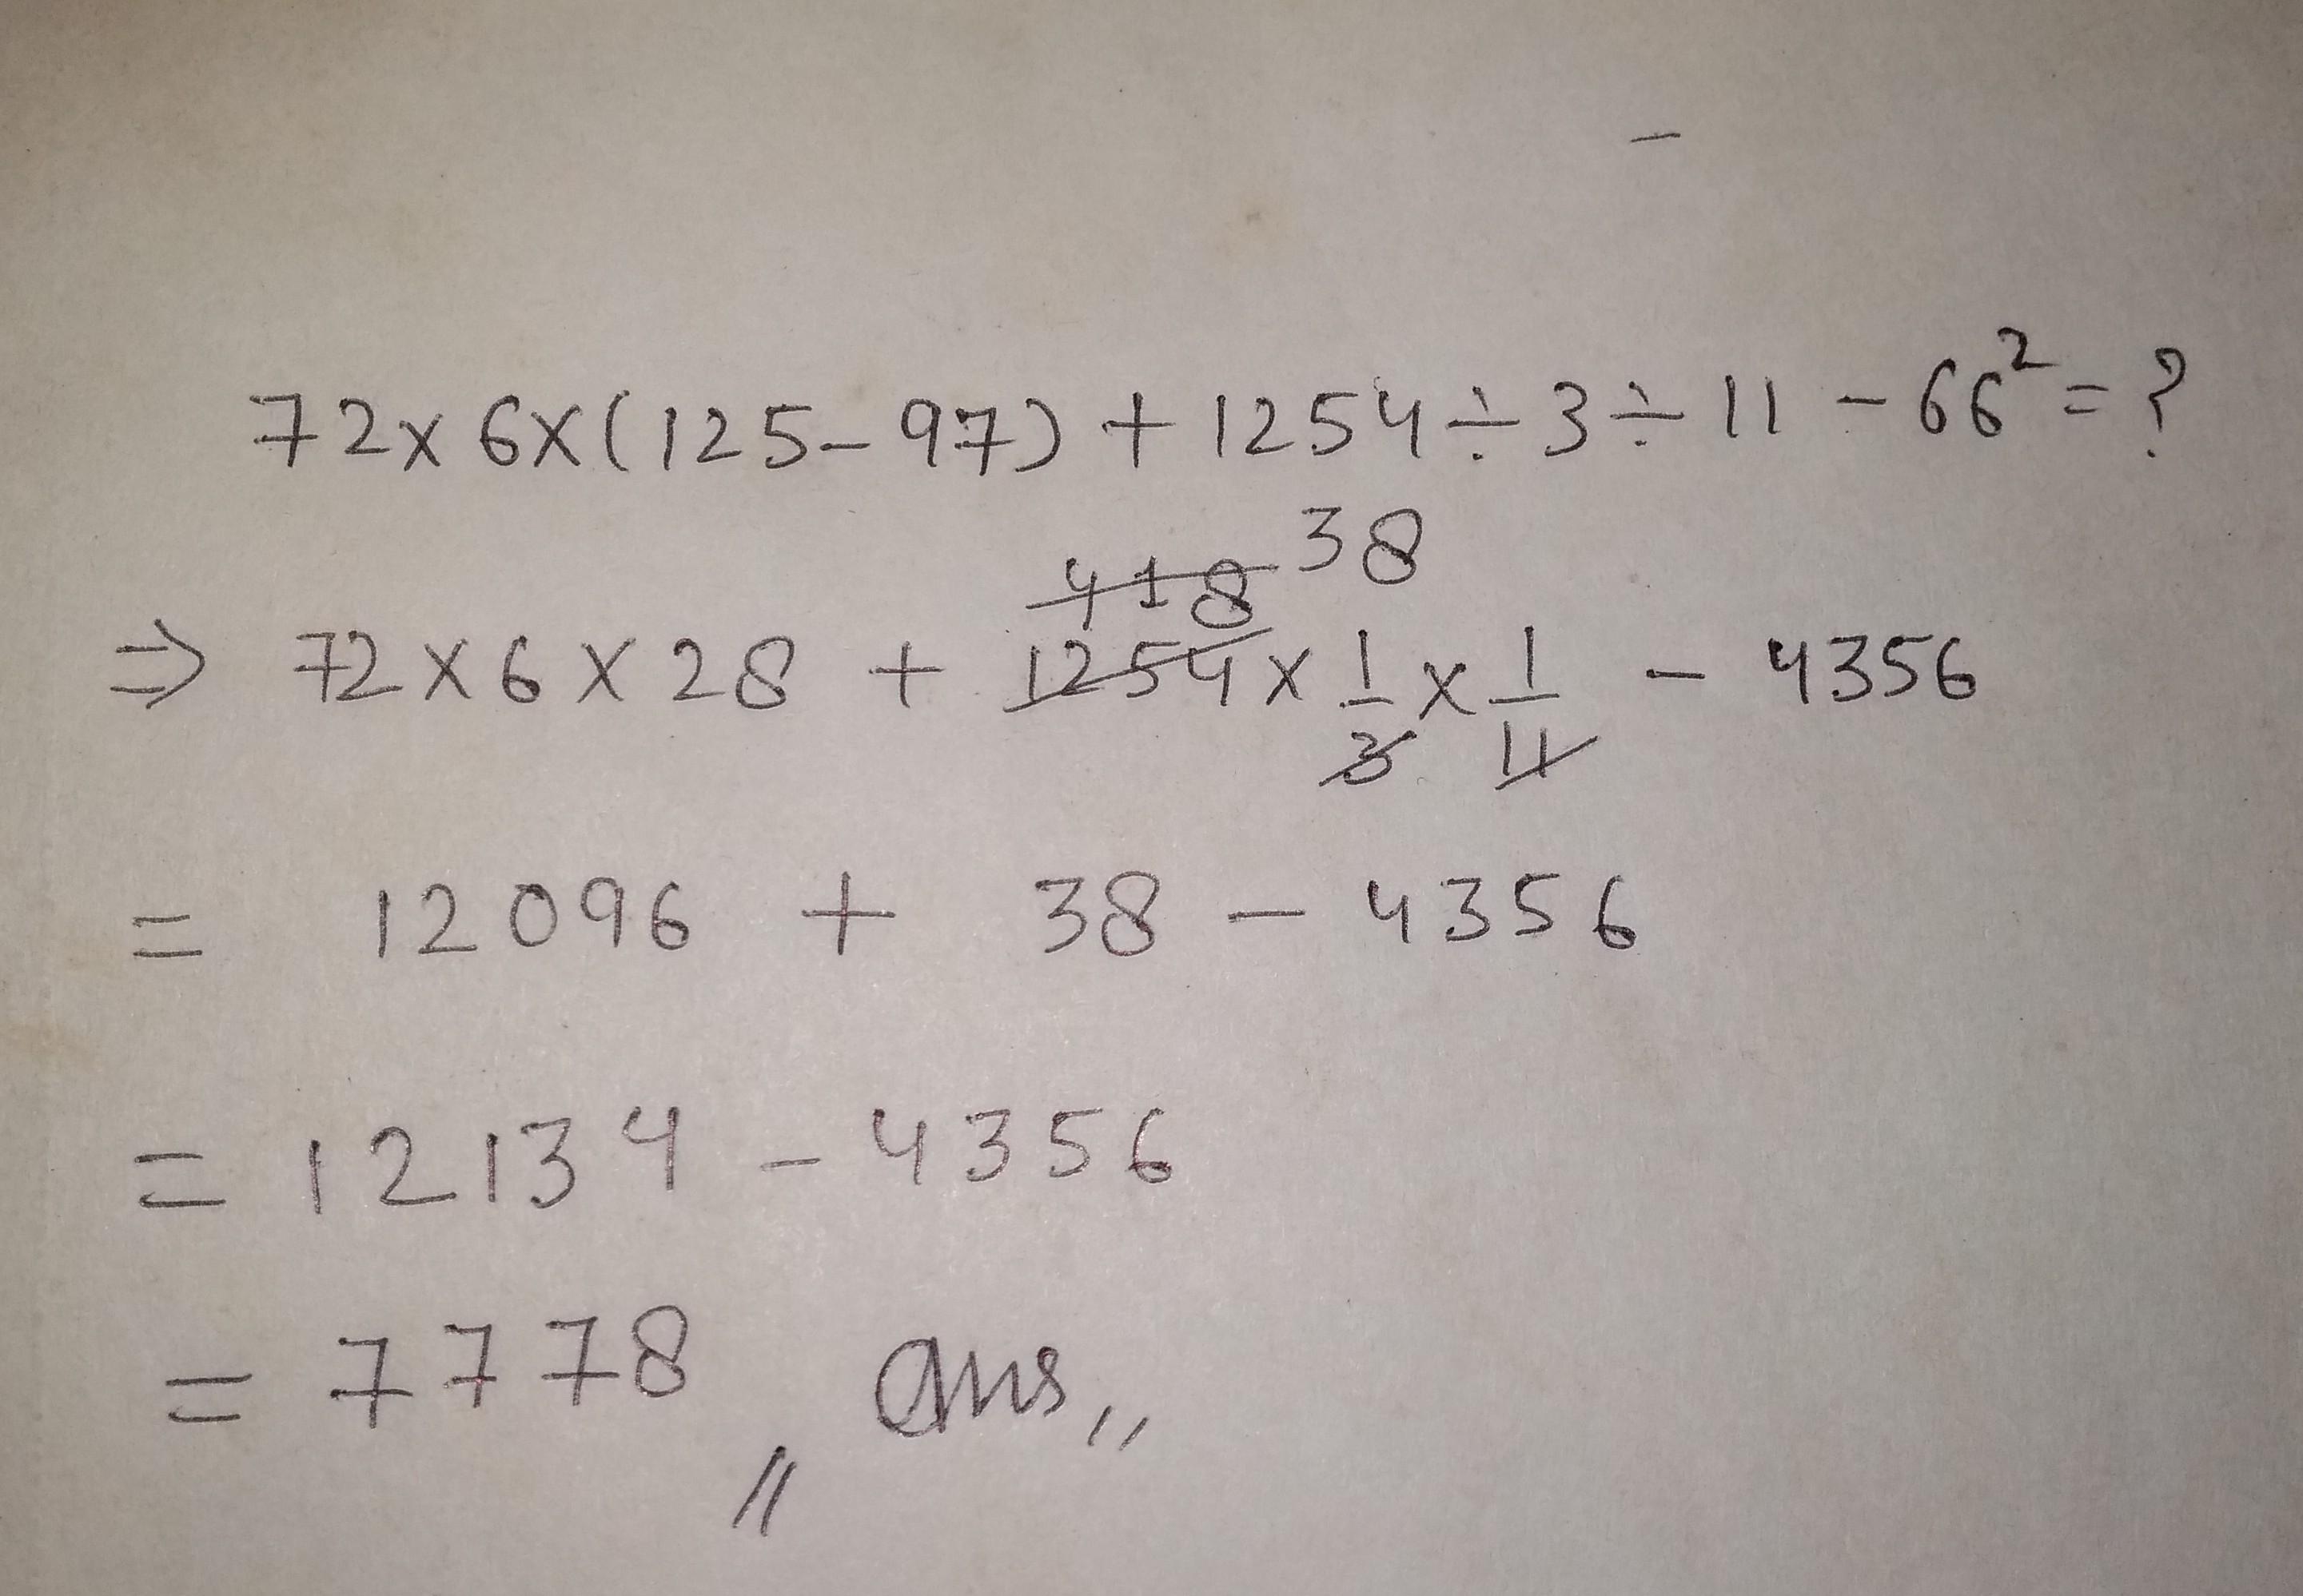 72x6x(125-97)+1254÷3÷11-66²=?
418 38
⇒ 72x6x28 + 1254x1/3x1/11 - 4356
= 12096 + 38 - 4356
= 12134 - 4356
= 7778,, ans,,